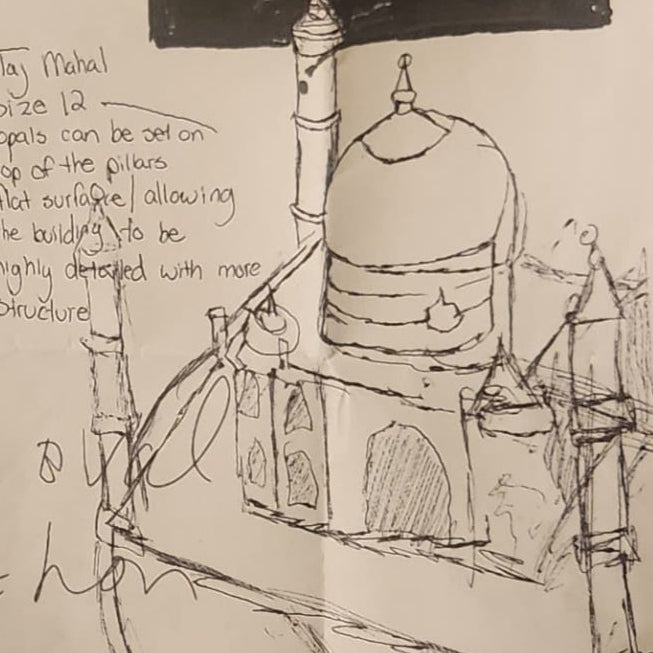 Taj Mahal
size 12
opals can be set on
top of the pillars
flat surface/allowing
the building to be
highly detailed with more
structure